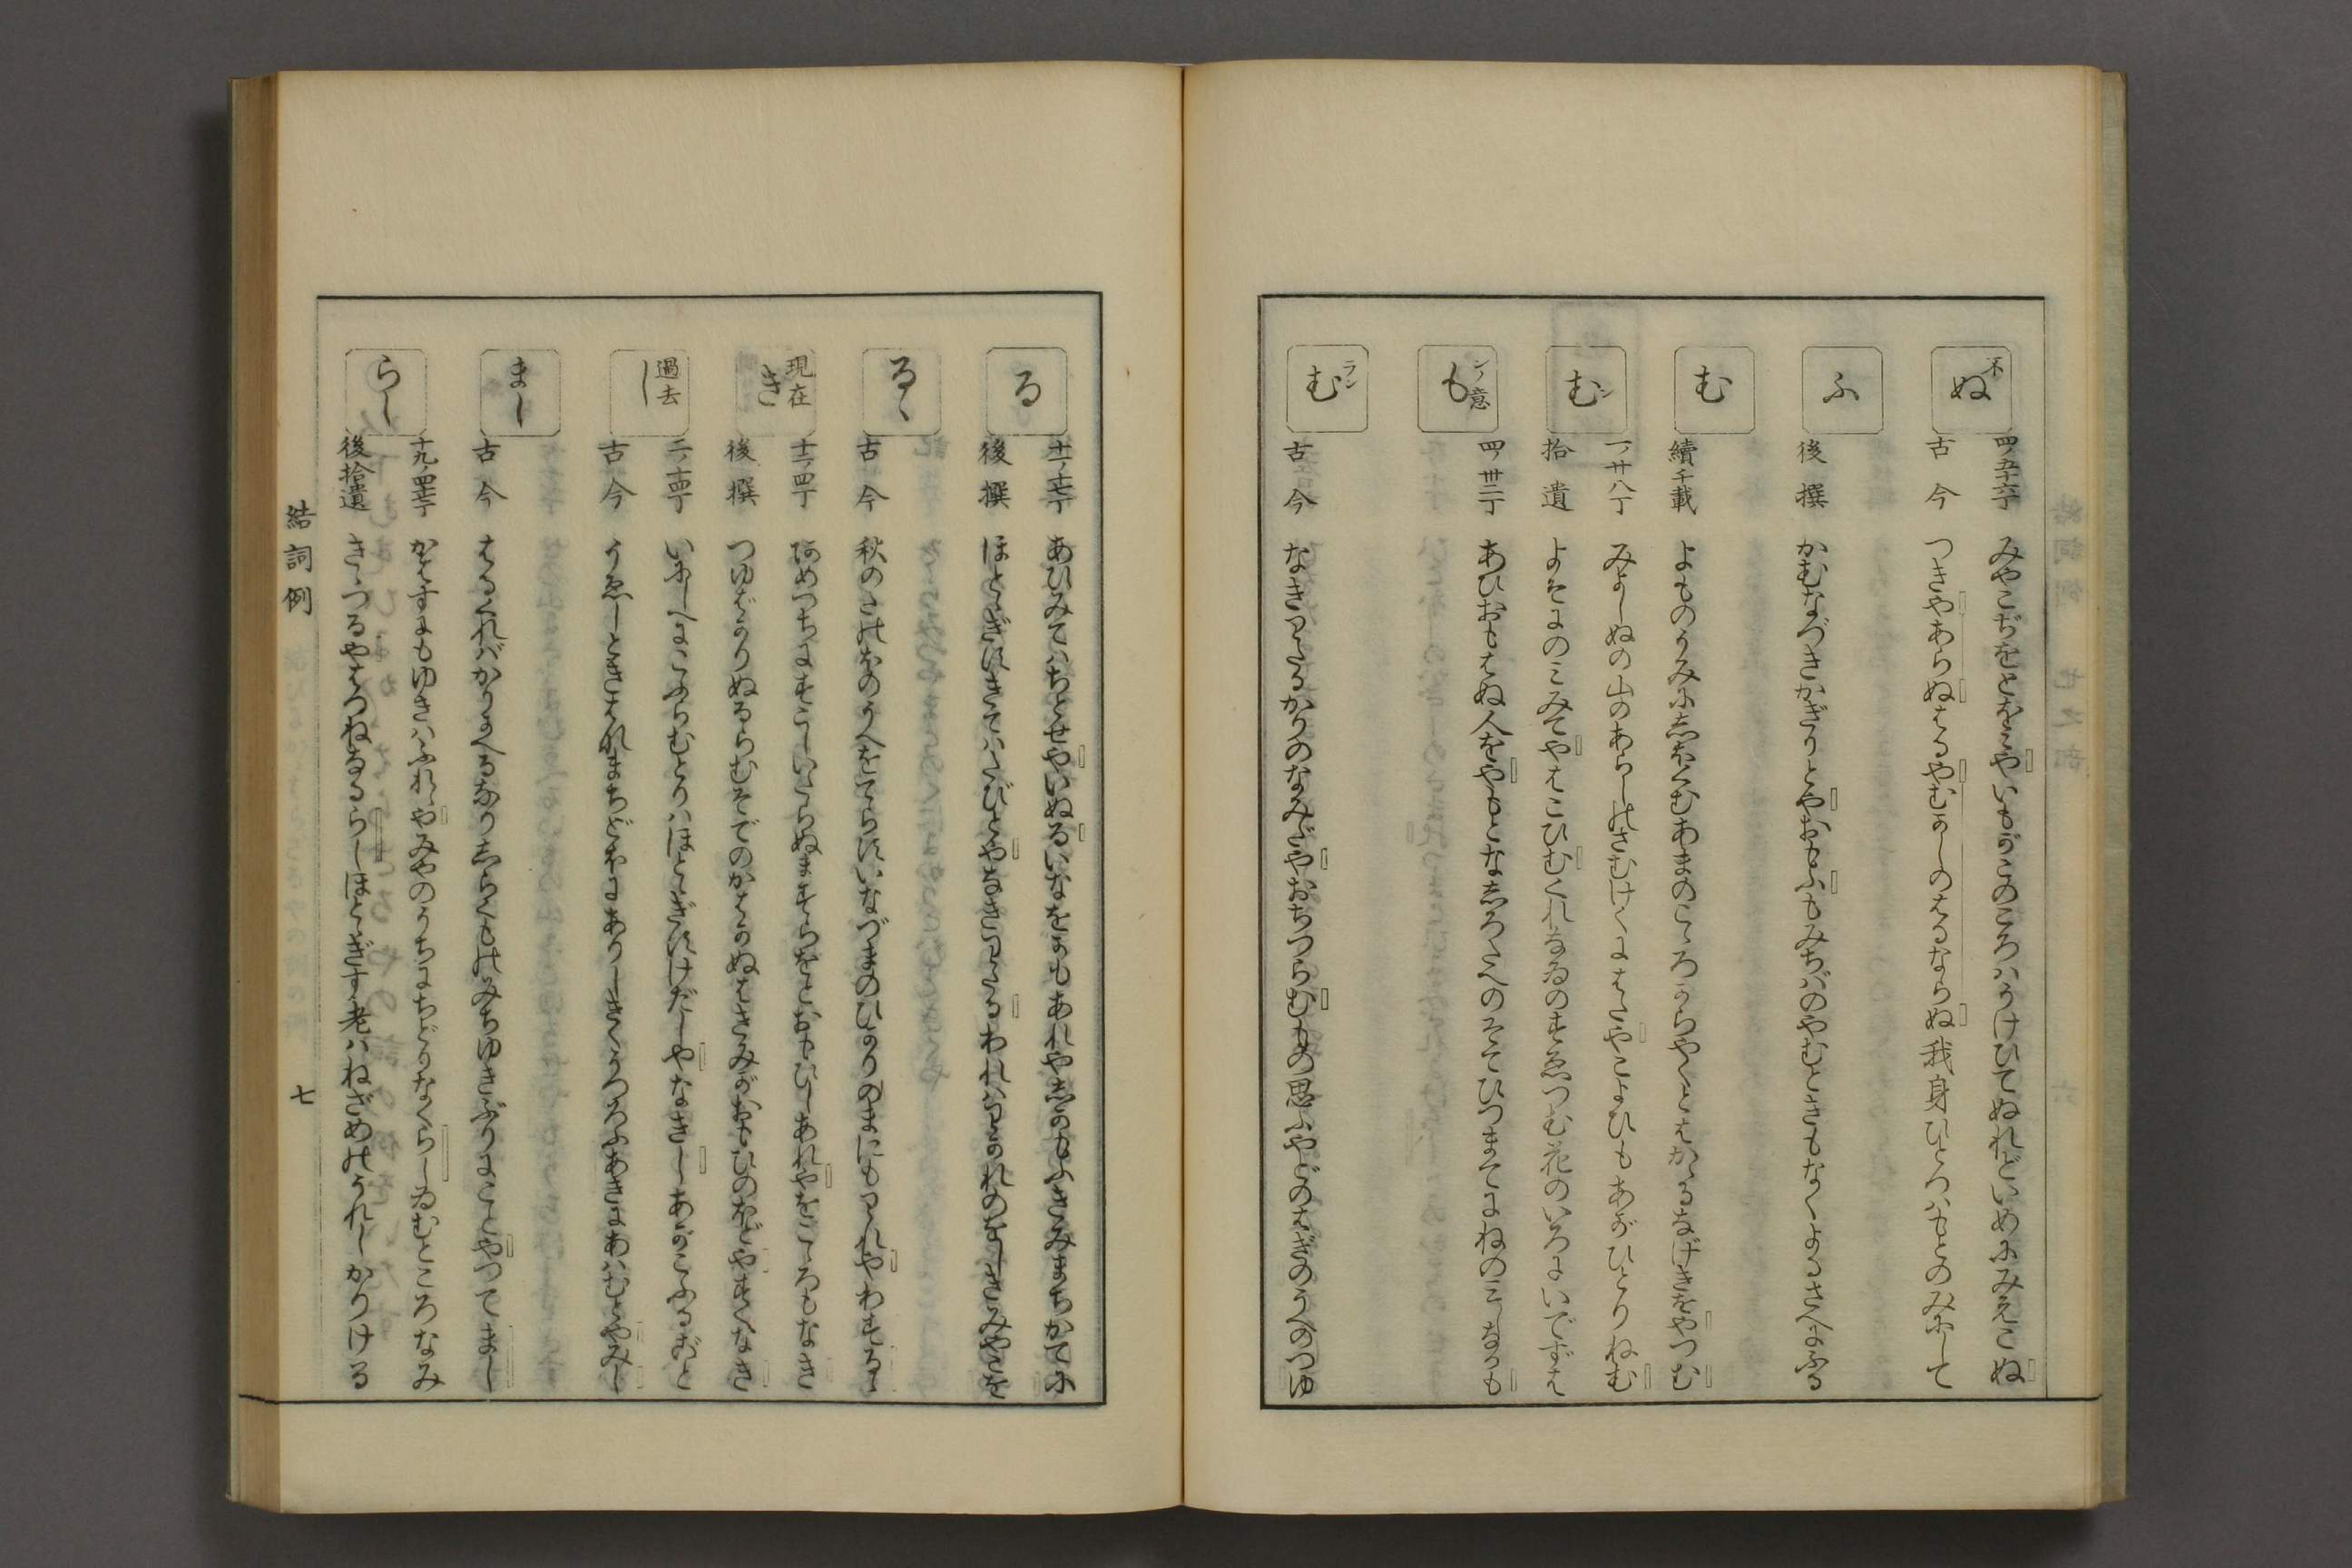 不
ぬ
四ノ五十六丁 みやこぢをとほみやいもがこのころハうけひてぬれどいめにみえこぬ
古今 つきやあらぬはるやむかしのはるならぬ我身ひとつハもとのみにして
ふ
後撰 かむなづきかぎりとやおもふもみぢバのやむときもなくよるさへにふる
む
續千載 よものうみにしほくむあまのこゝろからやくとはかゝるなげきをやつむ
ン
む
一ノ廿八丁 みよしぬの山のあらしのさむけくにはたやこよひもあがひとりねむ
拾遺 よそにのミみてやはこひむくれなゐのすゑつむ花のいろにいでずは
ンノ意
も
四ノ卅二丁 あひおもはぬ人をやもとなしろたへのそてひつまてにねのミしなかも
ラン
む
古今 なきわたるかりのなみだやおちつらむもの思ふやどのはぎのうへのつゆ
る
あひみてハちとせやいぬるいなをかもあれやしかもふきみまちかてに
後撰 ほとゝぎすきてハたびとやなきわたるわれハわかれのをしきみやこを
るゝ
古今 秋のたのほのうへをてらすいなづまのひかりのまにもわれやわするゝ
現在
き
十二ノ四丁 あめつちにすこしいたらぬますらをとおもひしあれやをごゝろもなき
後撰 つゆばかりぬるらむそでのかはかぬはきみがおもひのほどやすくなき
過去
し
二ノ十四丁 いにしへにこふらむとりハほとゝぎすけだしやなきしあがこふるごと
古今 うゑしときはなまちどほにありしきくうつろふあきにあハむとやみし
まし
古今 はるくればかりかへるなりしらくものみちゆきぶりにことやつてまし
らし
かはすにもゆきハふれゝやみやのうちにちどりなくらしゐむところなみ
後拾遺 きゝつるやはつねなるらしほとゝぎす老ハねざめのうれしかりける
結詞例 七